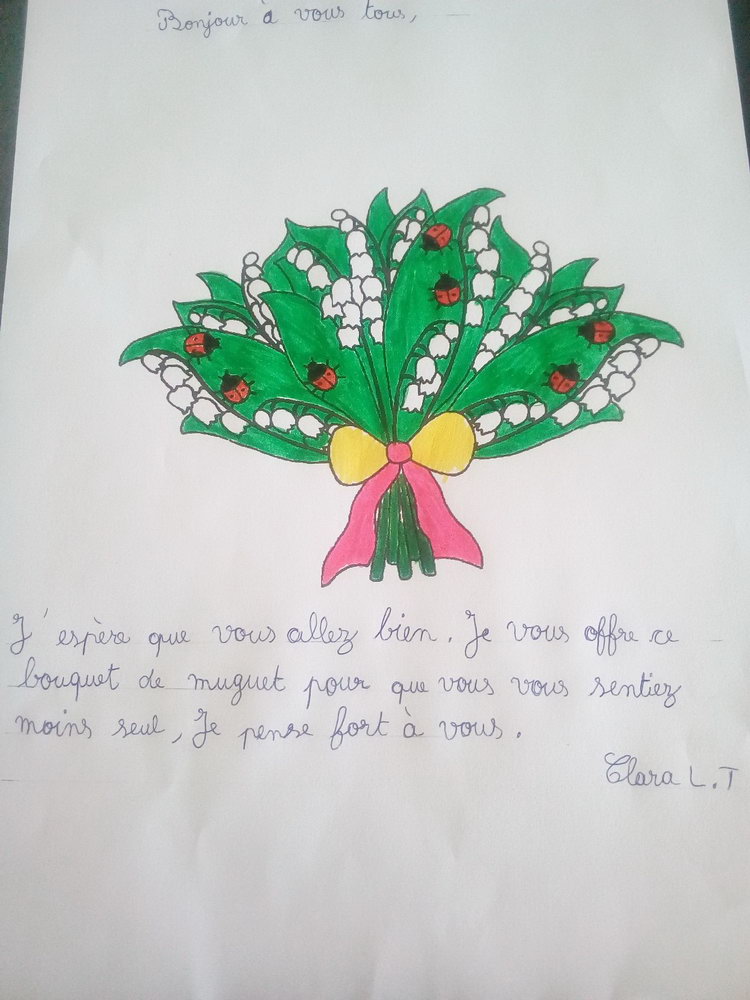 Bonjour à vous tous,
J'espère que vous allez bien. Je vous offre ce
bouquet de muguet pour que vous vous sentiez
moins seul, Je pense fort à vous.
Clara L.T